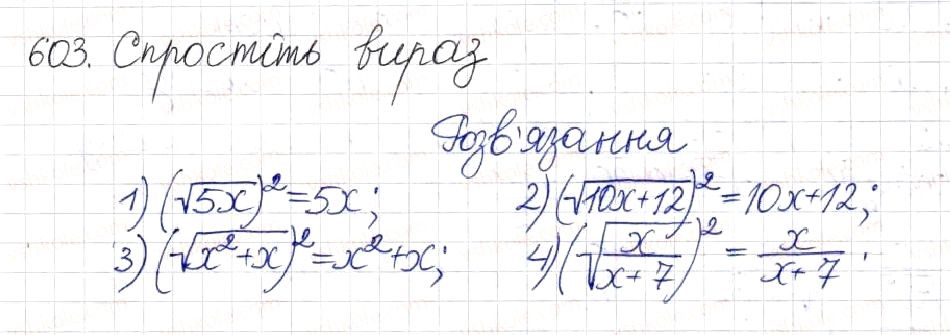 603. Спростіть вираз
Розв'язання
1) (√5x)² = 5x; 2) (√10x+12)² = 10x+12;
3) (√x²+x)² = x²+x; 4) (√x/x+7)² = x/x+7.